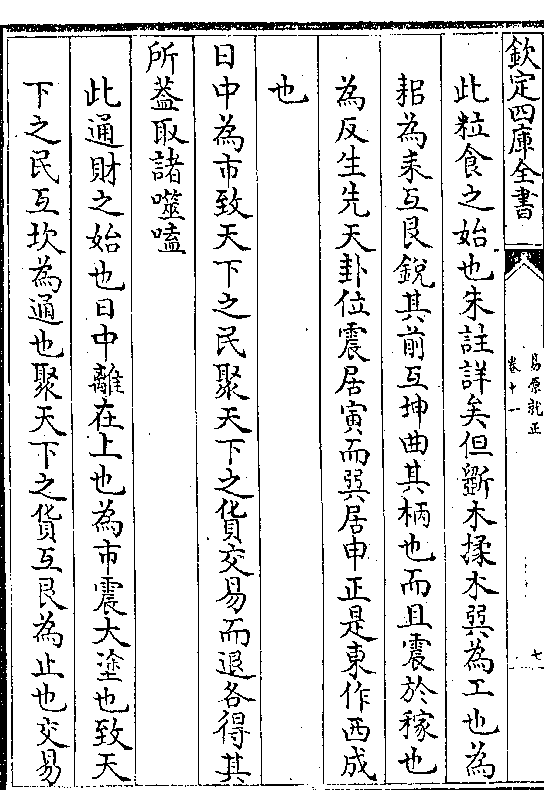 欽定四庫全書
易原就正
卷十一
七
此粒食之始也朱註詳矣但斲木揉木巽為工也為
耜為耒互艮銳其前互坤曲其柄也而且震於稼也
為反生先天卦位震居寅而巽居申正是東作西成
也
日中為市致天下之民聚天下之貨交易而退各得其
所葢取諸噬嗑
此通財之始也日中離在上也為市震大塗也致天
下之民互坎為通也聚天下之貨互艮為止也交易